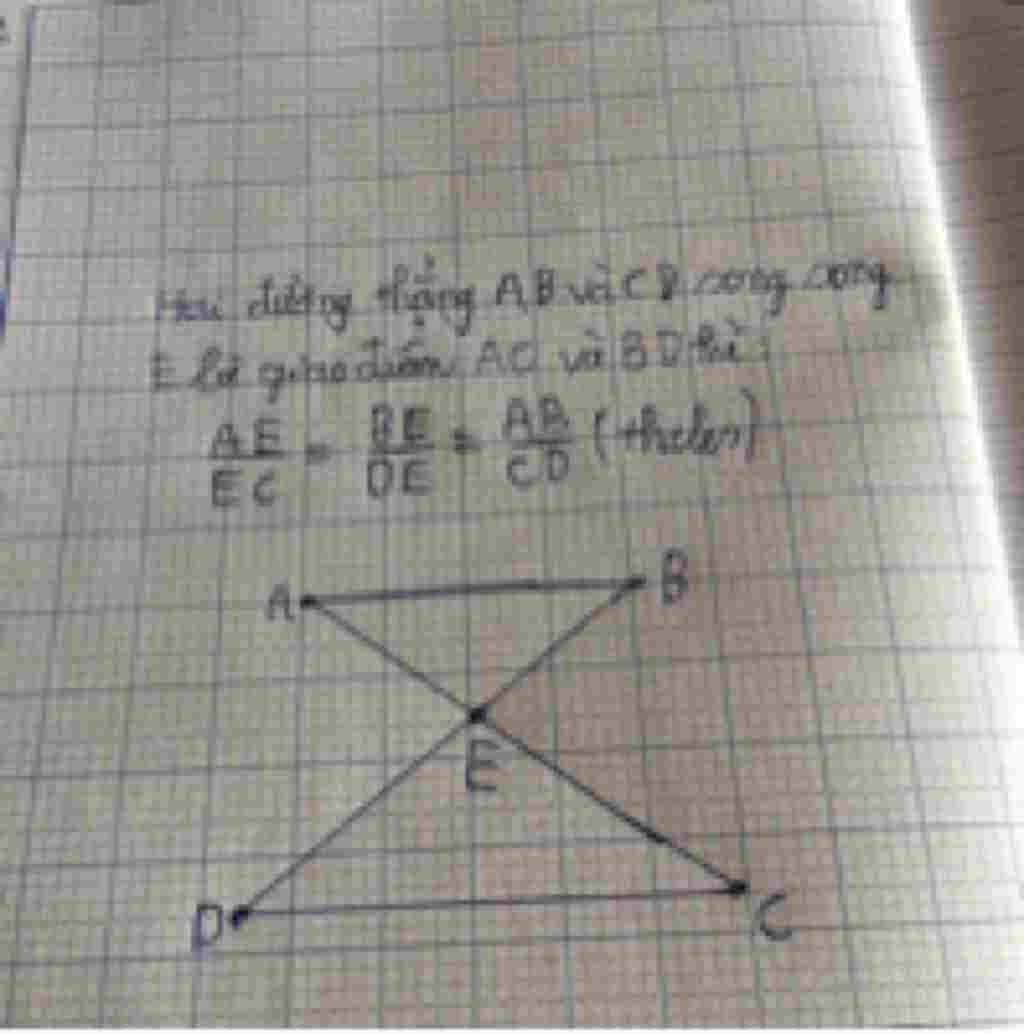 Hai đường thẳng AB và CD song song
E là giao điểm AC và BD thì:
AE/EC = BE/DE = AB/CD (thales)
A
B
E
D
C